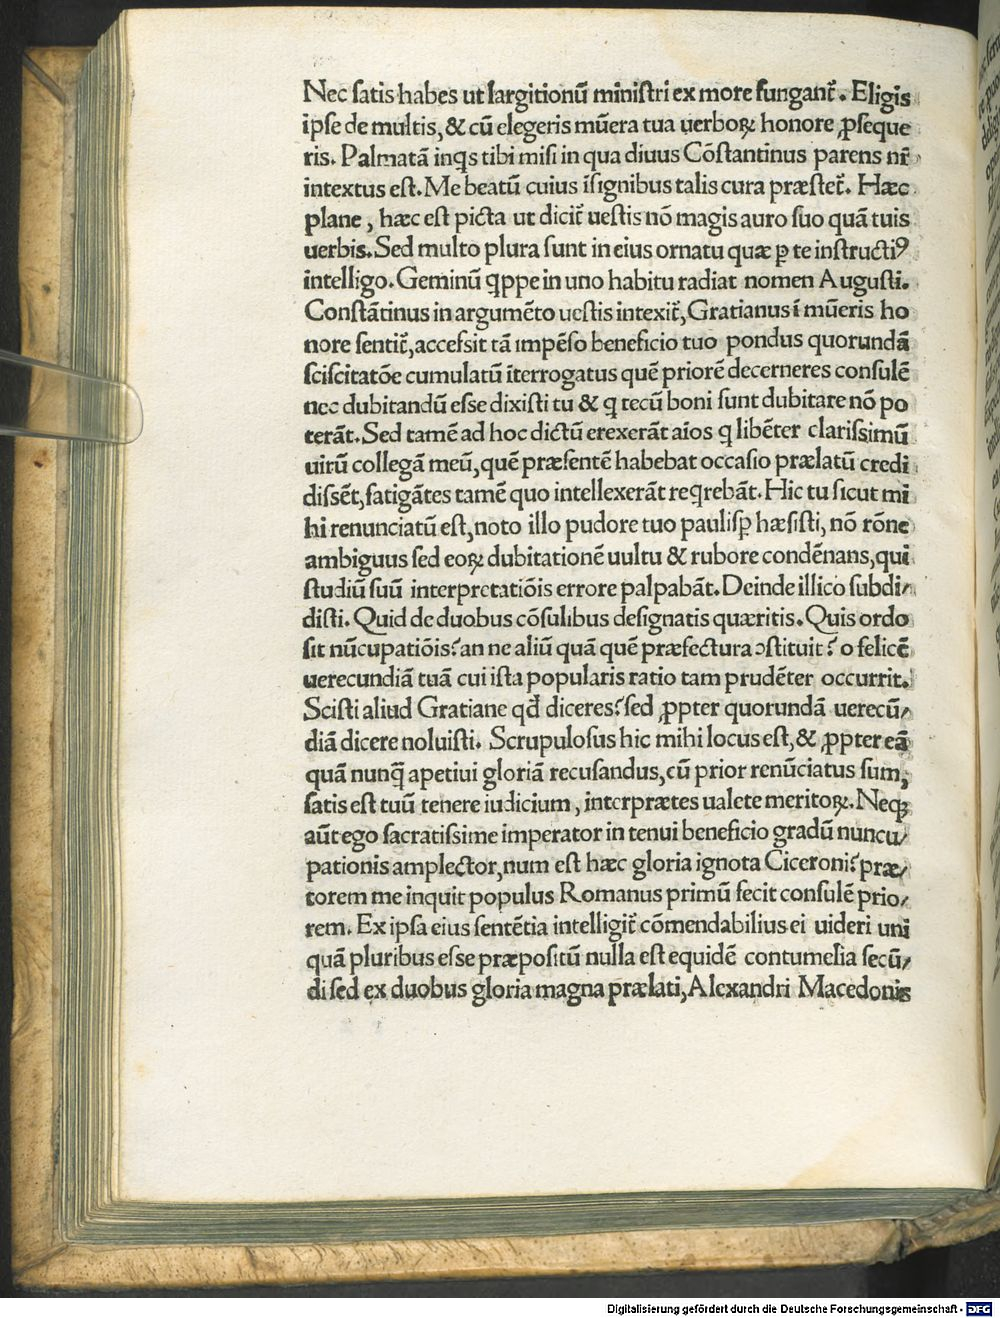 Nec ſatis habes ut largitionũ miniſtri ex more fungant᷑. Eligis
ipſe de multis, & cũ elegeris mũera tua uerboꝝ honore ꝓſeque
ris. Palmatã inqs tibi miſi in qua diuus Cõſtantinus parens nr̃
intextus eſt. Me beatũ cuius ĩſignibus talis cura præſtet᷑. Hæc
plane, hæc eſt picta ut dicit᷑ ueſtis nõ magis auro ſuo quã tuis
uerbis. Sed multo plura ſunt in eius ornatu quæ ꝑ te inſtructiꝰ
intelligo. Geminũ qppe in uno habitu radiat nomen Auguſti.
Conſtãtinus in argumẽto ueſtis intexit᷑, Gratianus ĩ mũeris ho
nore ſentit᷑, acceſsit tã impẽſo beneficio tuo pondus quorundã
ſciſcitatõe cumulatũ ĩterrogatus quẽ priorẽ decerneres conſulẽ
nec dubitandũ eſſe dixiſti tu & q tecũ boni ſunt dubitare nõ po
terãt. Sed tamẽ ad hoc dictũ erexerãt aĩos q libẽter clariſsimũ
uirũ collegã meũ, quẽ præſentẽ habebat occaſio prælatũ credi
diſsẽt, fatigãtes tamẽ quo intellexerãt reqrebãt. Hic tu ſicut mi
hi renunciatũ eſt, noto illo pudore tuo pauliſꝑ hæſiſti, nõ rõne
ambiguus ſed eoꝝ dubitationẽ uultu & rubore condẽnans, qui
ſtudiũ ſuũ interpretatiõis errore palpabãt. Deinde illico ſubdi⸗
diſti. Quid de duobus cõſulibus deſignatis quæritis. Quis ordo
ſit nũcupatiõis? an ne aliũ quã quẽ præfectura ↄſtituit? o felicẽ
uerecundiã tuã cui iſta popularis ratio tam prudẽter occurrit.
Sciſti aliud Gratiane qd̃ diceres? ſed ꝓpter quorundã uerecũ⸗
diã dicere noluiſti. Scrupuloſus hic mihi locus eſt, & ꝓpter eã
quã nunq̃ apetiui gloriã recuſandus, cũ prior renũciatus ſum,
ſatis eſt tuũ tenere iudicium, interprætes ualete meritoꝝ. Neqꝫ
aũt ego ſacratiſsime imperator in tenui beneficio gradũ nuncu⸗
pationis amplector, num eſt hæc gloria ignota Ciceroni? præ⸗
torem me inquit populus Romanus primũ fecit conſulẽ prio⸗
rem. Ex ipſa eius ſentẽtia intelligit᷑ cõmendabilius ei uideri uni
quã pluribus eſse præpoſitũ nulla eſt equidẽ contumelia ſecũ⸗
di ſed ex duobus gloria magna prælati, Alexandri Macedonis
Digitalisierung gefördert durch die Deutsche Forschungsgemeinschaft - DFG